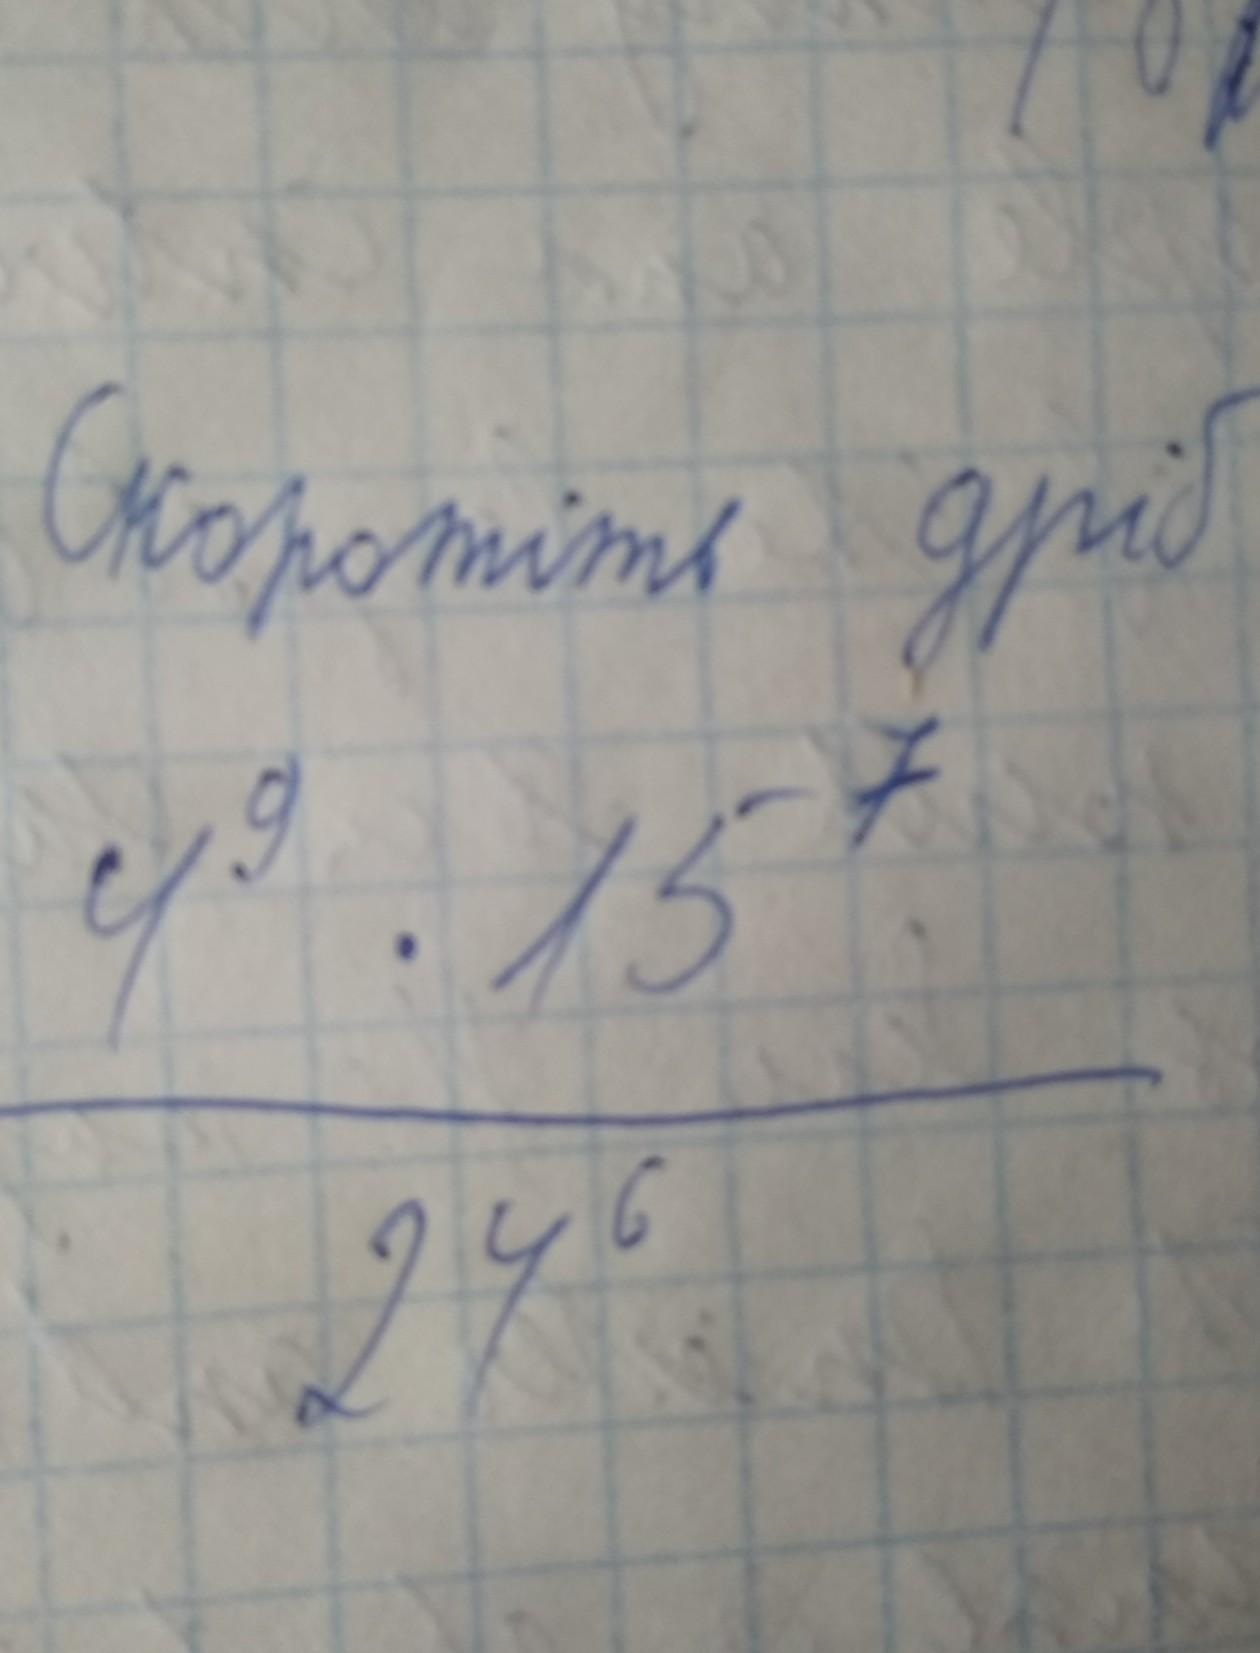 Скоротіть дріб
4⁹ · 15⁷
24⁶